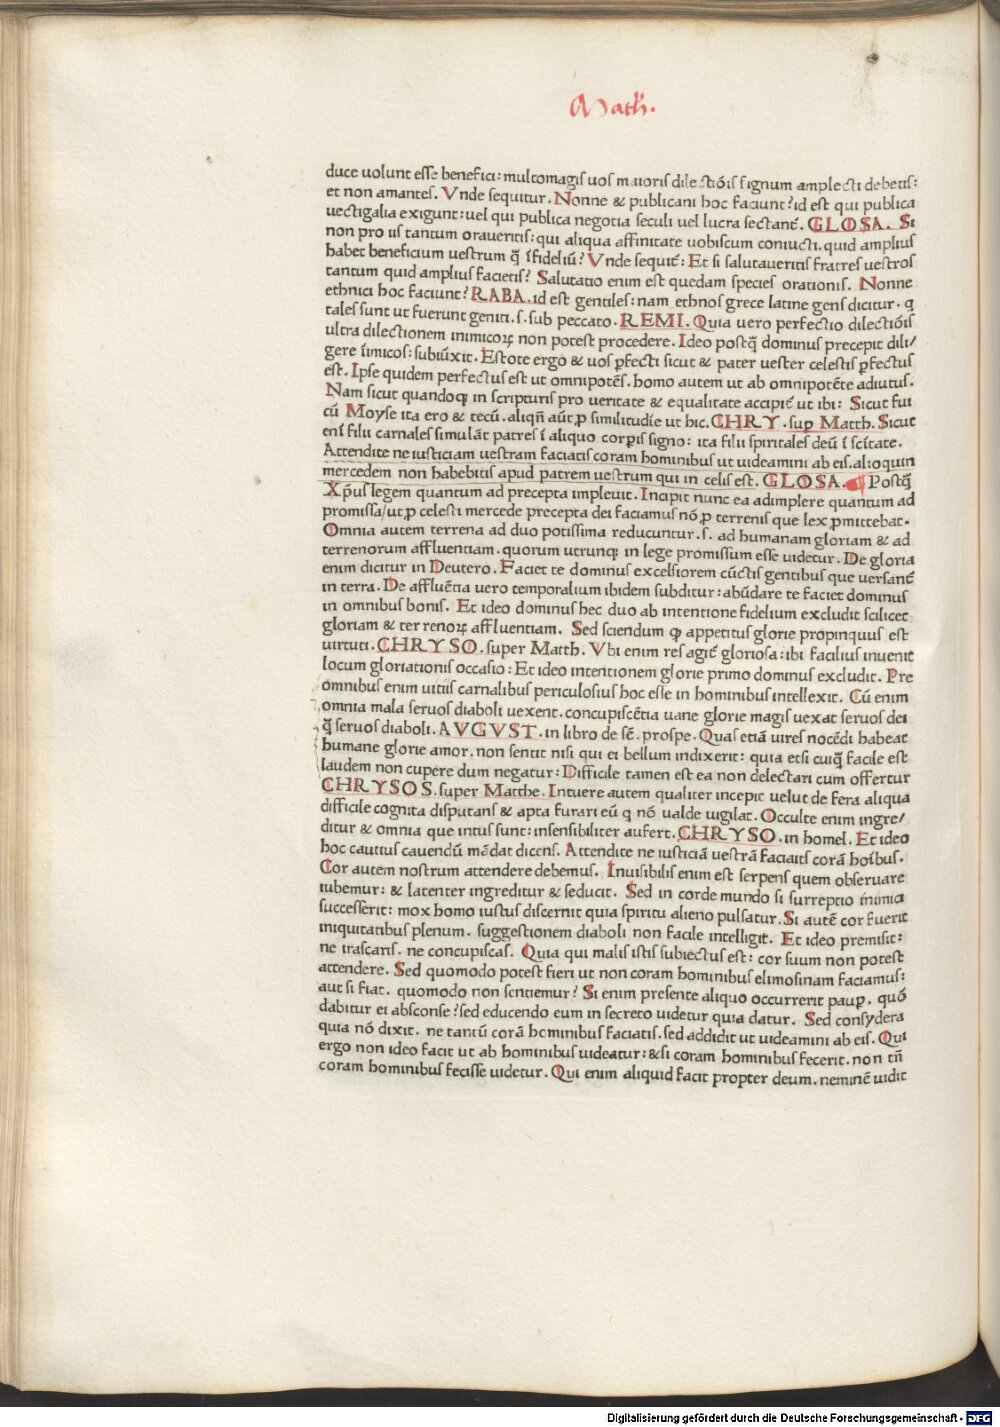 Math.
duce uolunt esse benefici: multomagis uos maioris dilectiōis signum amplecti debetis:
et non amantes. Vnde sequitur. Nonne & publicani hoc faciunt? id est qui publica
uectigalia exigunt: uel qui publica negotia seculi uel lucra sectant̄. GLOSA. Si
non pro iis tantum oraueritis: qui aliqua affinitate uobiscum coniucti. quid amplius
habet beneficium uestrum q̄ īfideliū? Vnde sequit̄: Et si salutaueritis fratres uestros
tantum quid amplius facietis? Salutatio enim est quedam species orationis. Nonne
ethnici hoc faciunt? RABA. id est gentiles: nam ethnos grece latine gens dicitur. q
tales sunt ut fuerunt geniti. s. sub peccato. REMI. Quia uero perfectio dilectiōis
ultra dilectionem inimicoꝝ non potest procedere. Ideo postq̄ dominus precepit dili/
gere īimicos: subiūxit. Estote ergo & uos ꝑfecti sicut & pater uester celestis ꝑfectus
est. Ipse quidem perfectus est ut omnipotēs. homo autem ut ab omnipotēte adiutus.
Nam sicut quandoqꝫ in scripturis pro ueritate & equalitate accipit̄ ut ibi: Sicut fui
cū Moyse ita ero & tecū. aliqn̄ aūt ꝑ similitudīe ut hic. CHRY. suꝑ Matth. Sicut
enī filii carnales simulāt patres ī aliquo corꝑis signo: ita filii spiritales deū ī scītate.
Attendite ne iusticiam uestram faciatis coram hominibus ut uideamini ab eis. alioquin
mercedem non habebitis apud patrem uestrum qui in celis est. GLOSA. ¶ Postq̄
Xp̄us legem quantum ad precepta impleuit. Incipit nunc ea adimplere quantum ad
promissa/ ut ꝓ celesti mercede precepta dei faciamus nō ꝓ terrenis que lex ꝓmittebat.
Omnia autem terrena ad duo potissima reducuntur. s. ad humanam gloriam & ad
terrenorum affluentiam. quorum utrunqꝫ in lege promissum esse uidetur. De gloria
enim dicitur in Deutero. Faciet te dominus excelsiorem cūctis gentibus que uersant̄
in terra. De affluētia uero temporalium ibidem subditur: abūdare te faciet dominus
in omnibus bonis. Et ideo dominus hec duo ab intentione fidelium excludit scilicet
gloriam & terrenoꝝ affluentiam. Sed sciendum ꝙ appetitus glorie propinquus est
uirtuti. CHRYSO. super Matth. Vbi enim res agit̄ gloriosa: ibi facilius inuenit
locum gloriationis occasio: Et ideo intentionem glorie primo dominus excludit. Pre
omnibus enim uitiis carnalibus periculosius hoc esse in hominibus intellexit. Cū enim
omnia mala seruos diaboli uexent. concupiscētia uane glorie magis uexat seruos dei
q̄ seruos diaboli. AVGVST. in libro de sē. prospe. Quas etiā uires nocēdi habeat
humane glorie amor. non sentit nisi qui ei bellum indixerit: quia etsi cuiq̄ facile est
laudem non cupere dum negatur: Difficile tamen est ea non delectari cum offertur
CHRYSOS. super Matthe. Intuere autem qualiter incepit uelut de fera aliqua
difficile cognita disputans & apta furari eū q nō ualde uigilat. Occulte enim ingre/
ditur & omnia que intus sunt: insensibiliter aufert. CHRYSO. in homel. Et ideo
hoc cautius cauendū mādat dicens. Attendite ne iusticiā uestrā faciatis corā hoībus.
Cor autem nostrum attendere debemus. Inuisibilis enim est serpens quem obseruare
iubemur: & latenter ingreditur & seducit. Sed in corde mundo si surreptio inimici
successerit: mox homo iustus discernit quia spiritu alieno pulsatur. Si autē cor fuerit
iniquitatibus plenum. suggestionem diaboli non facile intelligit. Et ideo premisit:
ne irascaris. ne concupiscas. Quia qui malis istis subiectus est: cor suum non potest
attendere. Sed quomodo potest fieri ut non coram hominibus elimosinam faciamus:
aut si fiat. quomodo non sentiemur? Si enim presente aliquo occurrerit pauꝑ. quō
dabitur ei absconse? sed educendo eum in secreto uidetur quia datur. Sed consydera
quia nō dixit. ne tantū corā hominibus faciatis. sed addidit ut uideamini ab eis. Qui
ergo non ideo facit ut ab hominibus uideatur: & si coram hominibus fecerit. non tn̄
coram hominibus fecisse uidetur. Qui enim aliquid facit propter deum. neminē uidit
Digitalisierung gefördert durch die Deutsche Forschungsgemeinschaft - DFG